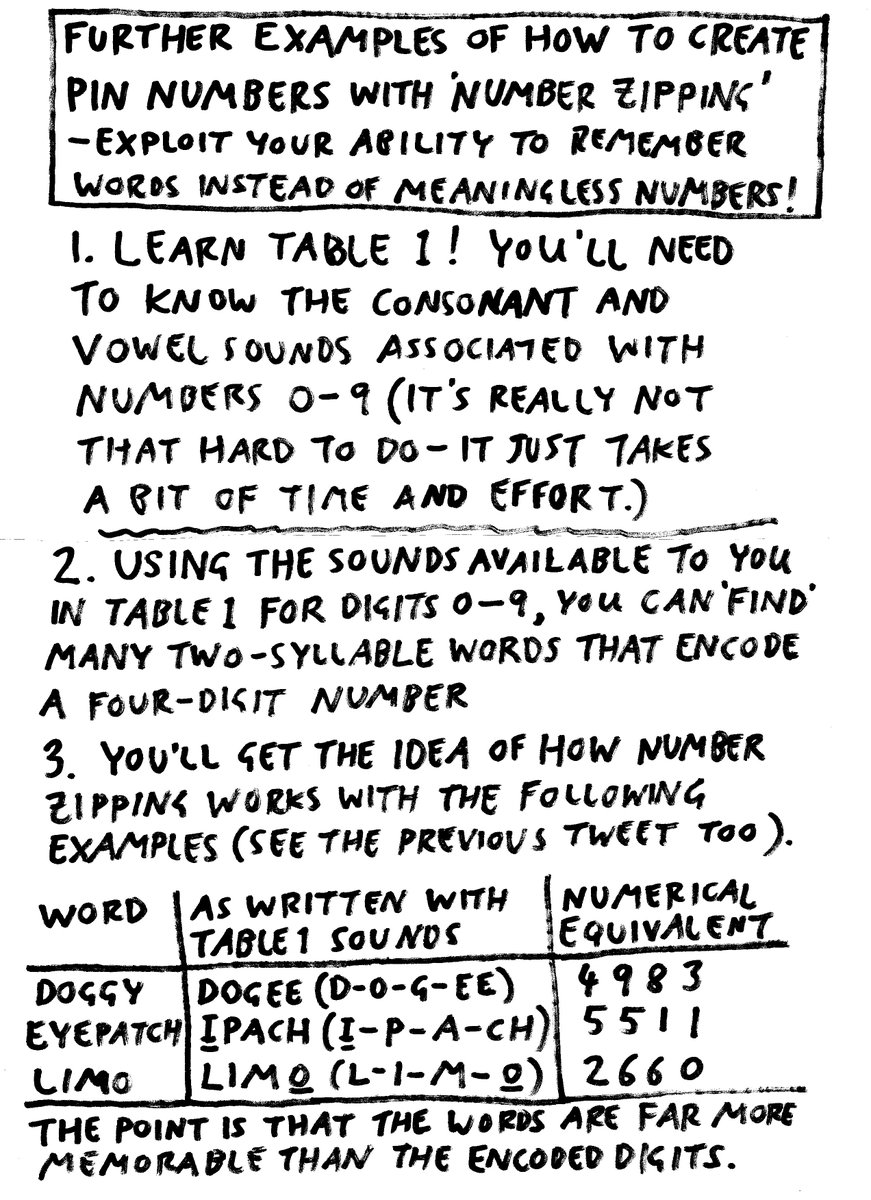 FURTHER EXAMPLES OF HOW TO CREATE
PIN NUMBERS WITH 'NUMBER ZIPPING'
-EXPLOIT YOUR ABILITY TO REMEMBER
WORDS INSTEAD OF MEANINGLESS NUMBERS!
1. LEARN TABLE 1! YOU'LL NEED
TO KNOW THE CONSONANT AND
VOWEL SOUNDS ASSOCIATED WITH
NUMBERS 0-9 (IT'S REALLY NOT
THAT HARD TO DO- IT JUST TAKES
A BIT OF TIME AND EFFORT.)
2. USING THE SOUNDS AVAILABLE TO YOU
IN TABLE 1 FOR DIGITS 0-9, YOU CAN 'FIND'
MANY TWO-SYLLABLE WORDS THAT ENCODE
A FOUR-DIGIT NUMBER
3. YOU'LL GET THE IDEA OF HOW NUMBER
ZIPPING WORKS WITH THE FOLLOWING
EXAMPLES (SEE THE PREVIOUS TWEET TOO).
WORD | AS WRITTEN WITH TABLE 1 SOUNDS | NUMERICAL EQUIVALENT
DOGGY | DOGEE (D-O-G-EE) | 4983
EYEPATCH | IPACH (I-P-A-CH) | 5511
LIMO | LIMO (L-I-M-O) | 2660
THE POINT IS THAT THE WORDS ARE FAR MORE
MEMORABLE THAN THE ENCODED DIGITS.